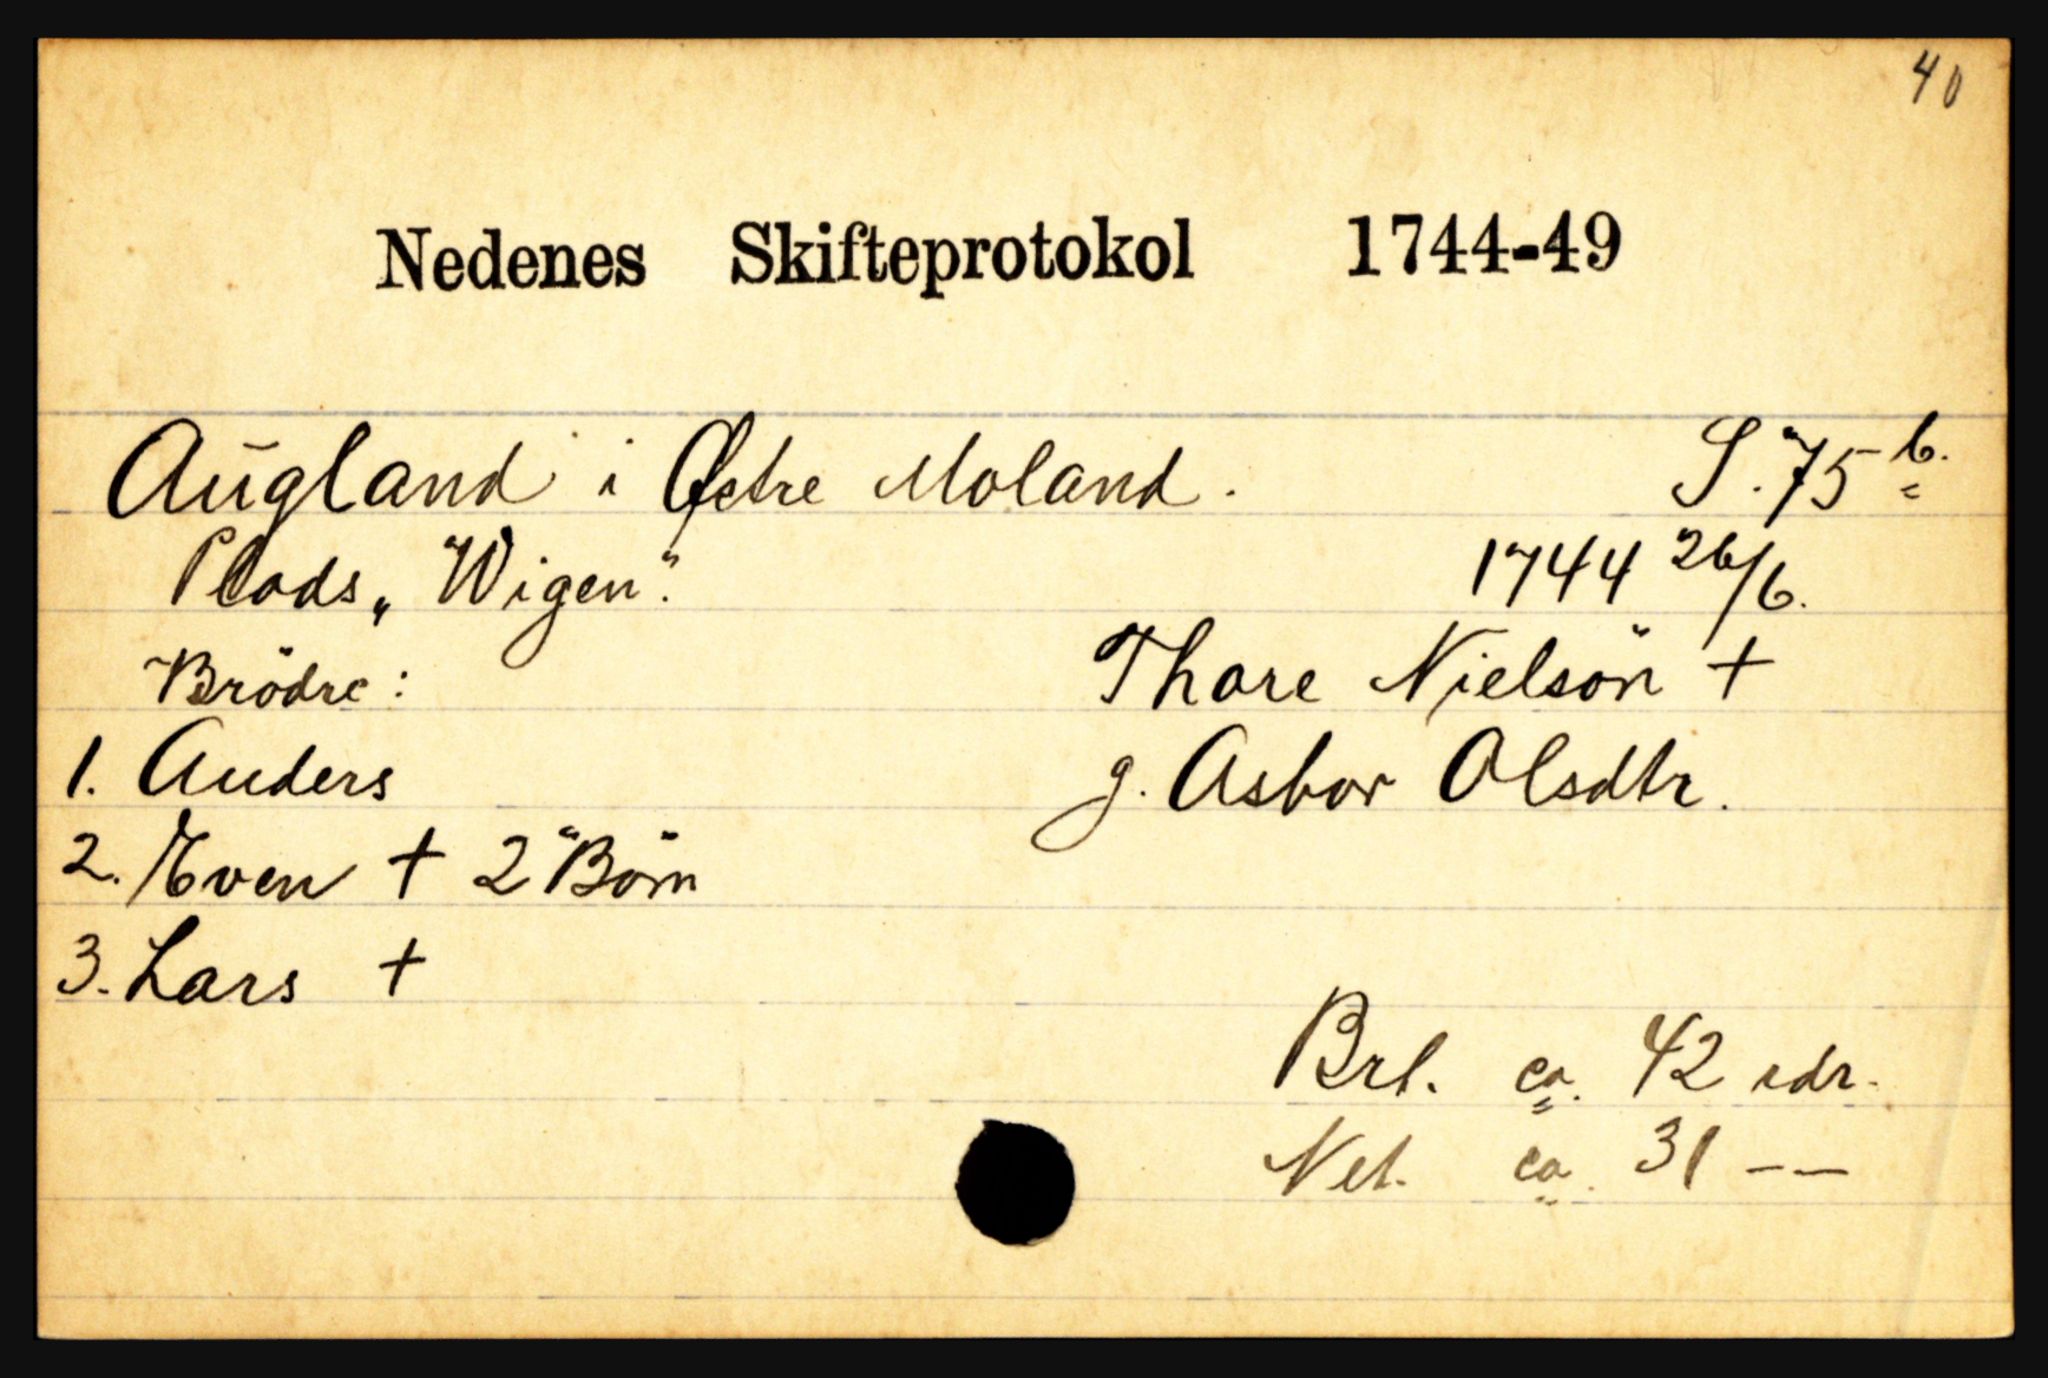 40
Nedenes Skifteprotokol 1744-49
Augland i Østre Moland. S. 75 b.
Plads „Wigen". 1744 26/6.
Brödre: Thore Nielsön +
1. Anders g. Asbor Olsdtr.
2. Even + 2 Börn
3. Lars +
Brt. ca. 42 rdr.
Net. ca. 31 — —